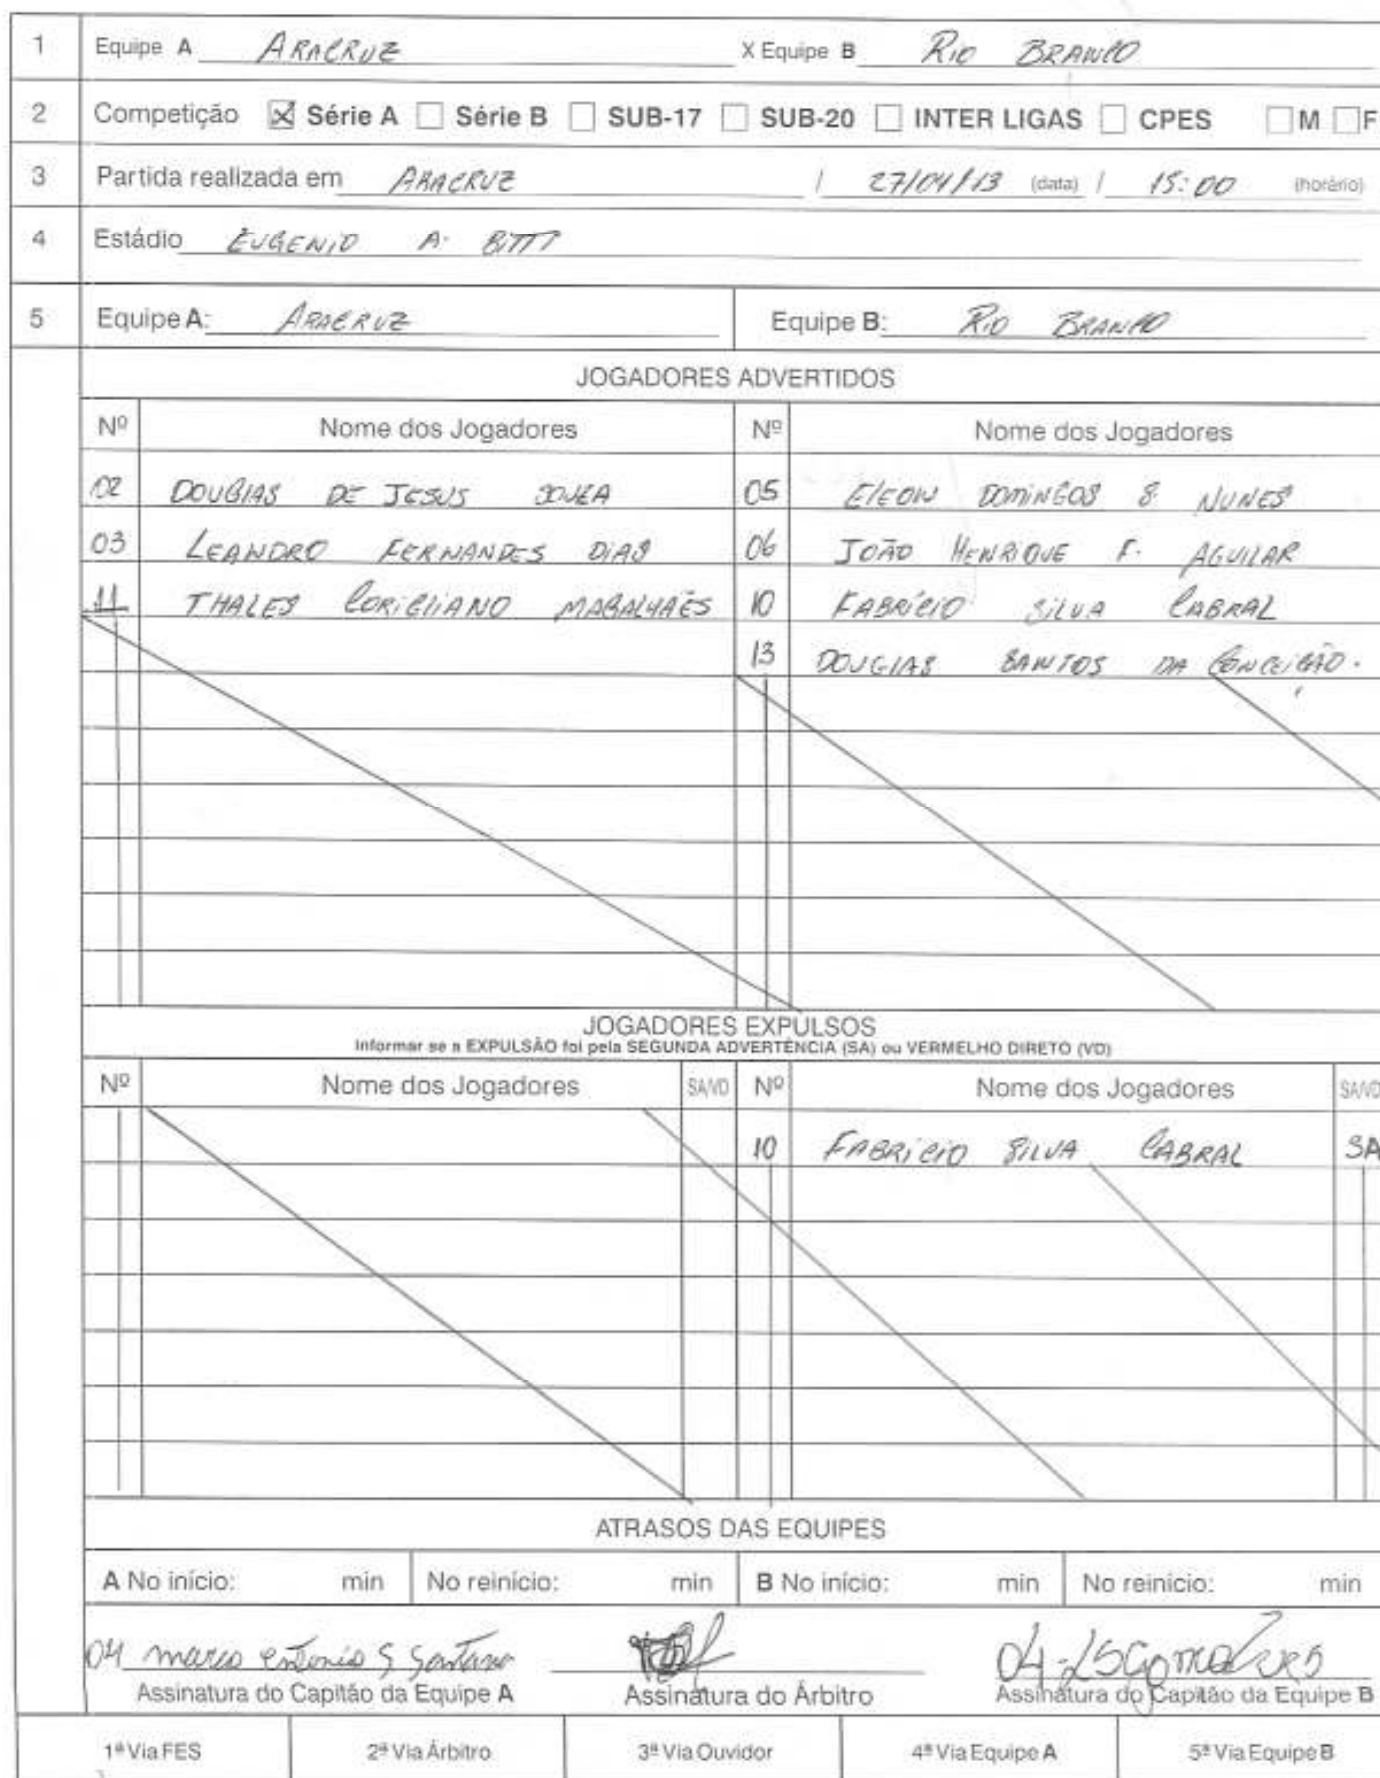 1 Equipe A ARACRUZ X Equipe B RIO BRANCO
2 Competição ☒ Série A ☐ Série B ☐ SUB-17 ☐ SUB-20 ☐ INTER LIGAS ☐ CPES ☐ M ☐ F
3 Partida realizada em ARACRUZ / 27/04/13 (data) / 15:00 (horário)
4 Estádio EUGENIO A. BITTI
5 Equipe A: ARACRUZ Equipe B: RIO BRANCO
JOGADORES ADVERTIDOS
Nº Nome dos Jogadores Nº Nome dos Jogadores
02 DOUGLAS DE JESUS SOUZA 05 ELEON DOMINGOS S. NUNES
03 LEANDRO FERNANDES DIAS 06 JOÃO HENRIQUE F. AGUILAR
11 THALES CORIGLIANO MAGALHAES 10 FABRÍCIO SILVA CABRAL
13 DOUGLAS SANTOS DA CONCEIÇÃO.
JOGADORES EXPULSOS
Informar se a EXPULSÃO foi pela SEGUNDA ADVERTÊNCIA (SA) ou VERMELHO DIRETO (VD)
Nº Nome dos Jogadores SA/VD Nº Nome dos Jogadores SA/VD
10 FABRÍCIO SILVA CABRAL SA
ATRASOS DAS EQUIPES
A No início: min No reinício: min B No início: min No reinício: min
04 marco antonio S Santana 04
Assinatura do Capitão da Equipe A Assinatura do Árbitro Assinatura do Capitão da Equipe B
1ª Via FES 2ª Via Árbitro 3ª Via Ouvidor 4ª Via Equipe A 5ª Via Equipe B